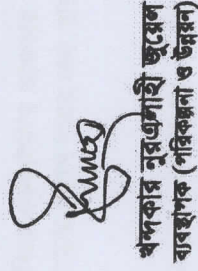 খন্দকার নুরএলাহী জুয়েল
ব্যবস্থাপক (পরিকল্পনা ও উন্নয়ন)